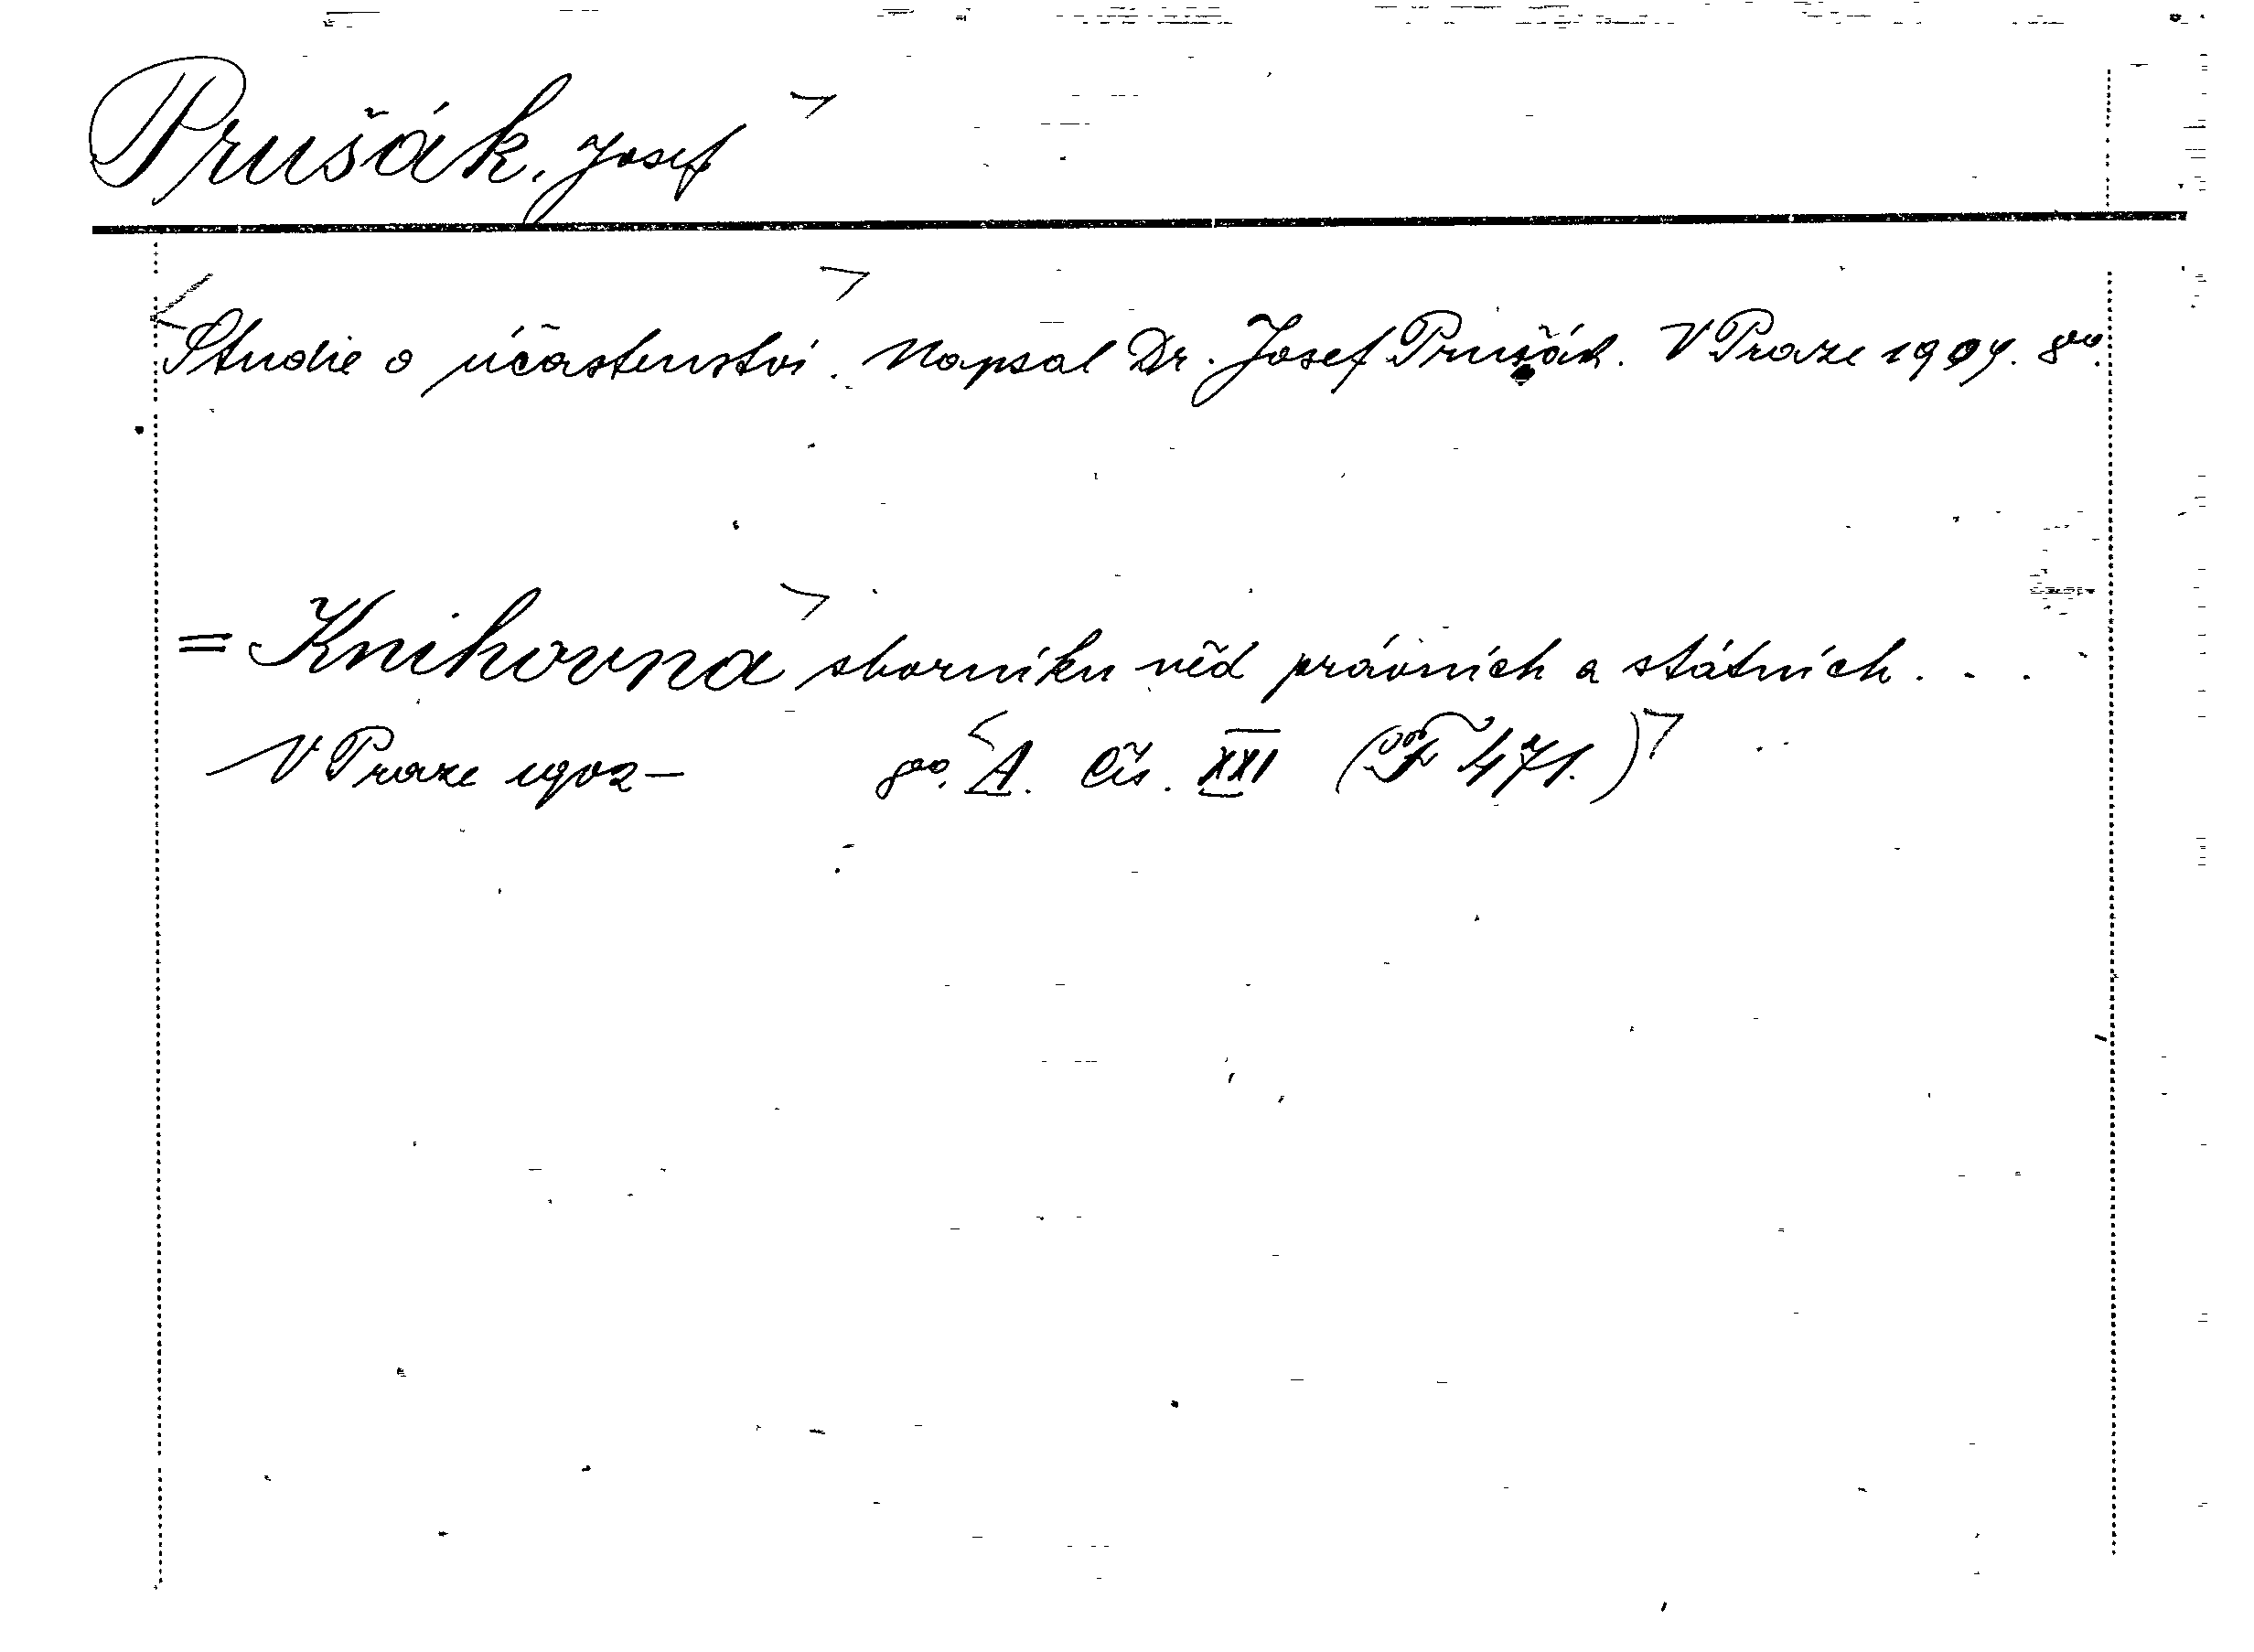 Prušák, Josef
Studie o účastenství. Napsal Dr. Josef Prušák. V Praze 1904. 8vo.
= Knihovna sborníku věd právních a státních . . .
V Praze 1902— 8vo. A. Čís. XXI (F 471.)